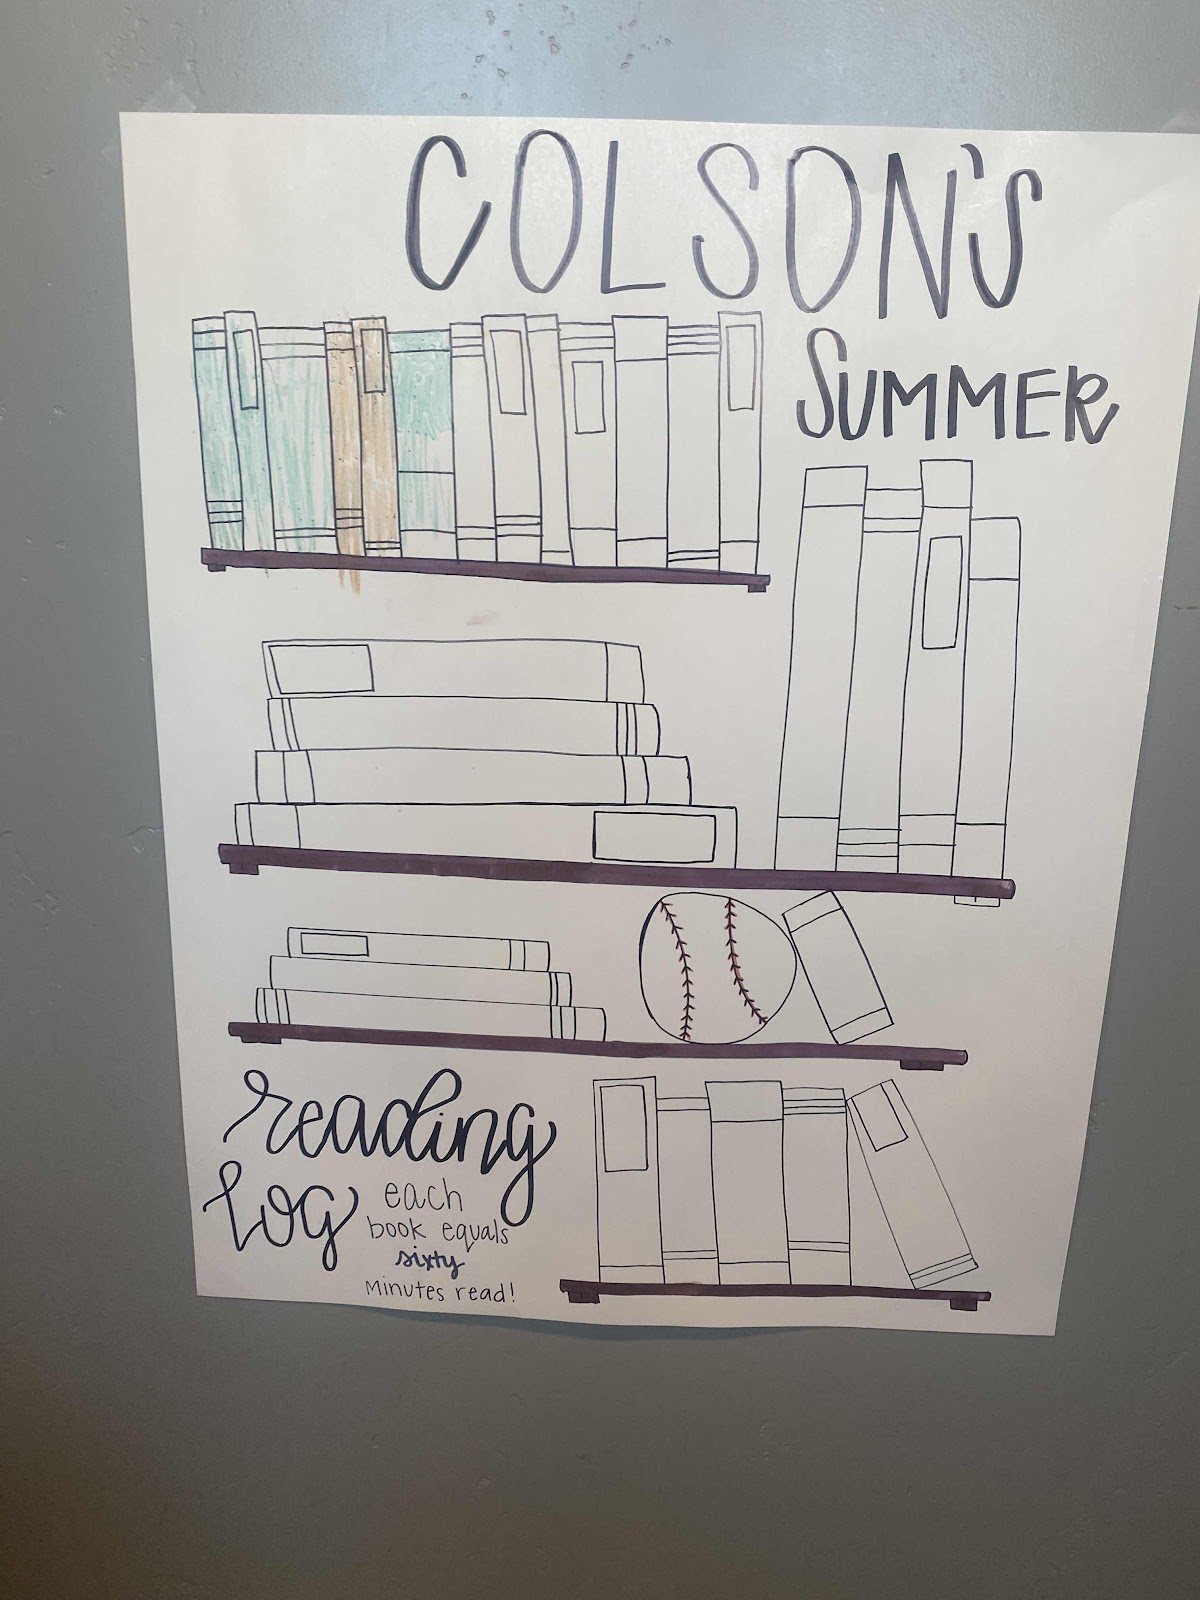 COLSON'S
SUMMER
reading
log
each
book equals
sixty
Minutes read!